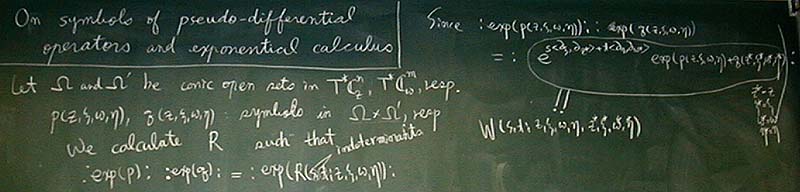 On symbols of pseudo-differential
operators and exponential calculus
Let Ω and Ω' be conic open sets in T*ℂⁿ_z, T*ℂᵐ_w, resp.
p(z,ξ,w,η), q(z,ξ,w,η) : symbols in Ω×Ω', resp
We calculate R such that
indeterminants
:exp(p): :exp(q): = :exp(R(s,t;z,ξ,w,η)):
Since :exp(p(z,ξ,w,η)): :exp(q(z,ξ,w,η)):
=: e^{s<∂ξ,∂z*>+t<∂η,∂w*>} exp(p(z,ξ,w,η)+q(z*,ξ*,w*,η*)) :
z*=z
ξ*=ξ
w*=w
η*=η
W(s,t;z,ξ,w,η,z*,ξ*,w*,η*)